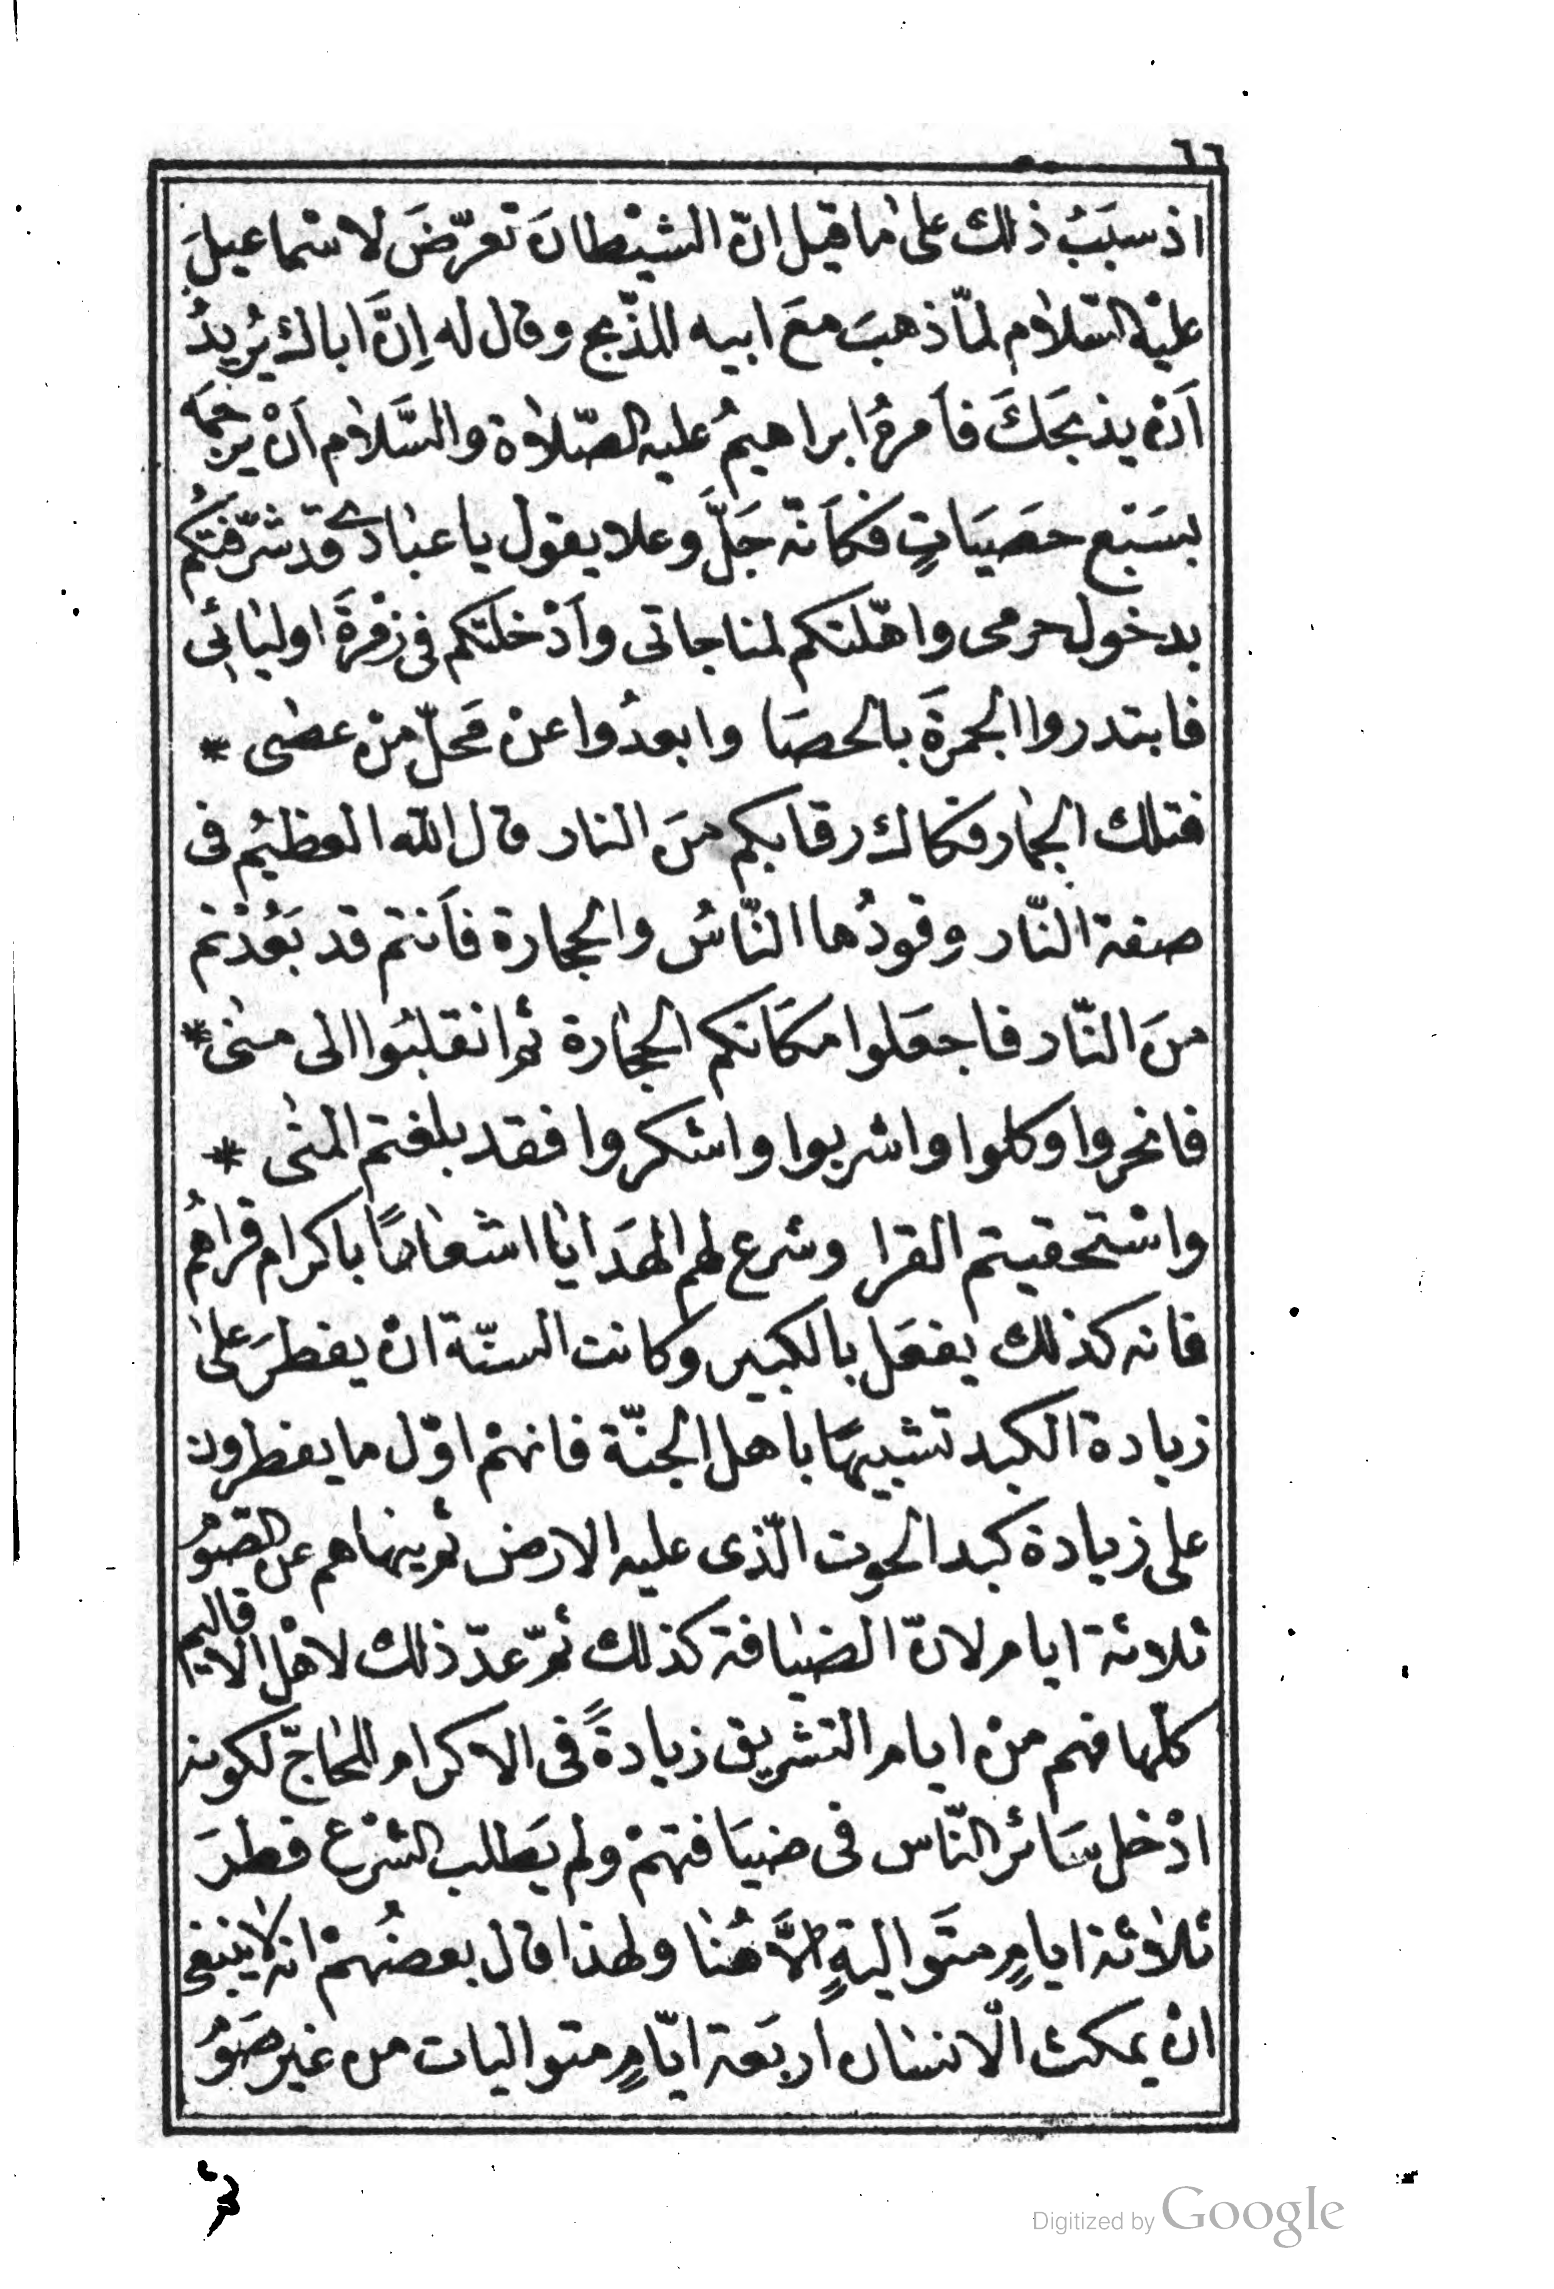 ٦٦
اذ سبَبُ ذلك على ما قيل انّ الشيْطانَ تعرّضَ لاسْماعيلَ
عليْه السّلام لمّا ذهبَ معَ ابيه للذّبح وقال له اِنَّ اباك يُريدُ
اَنْ يذبحَكَ فاَمرهُ ابراهيمُ عليه الصّلاة والسَّلام اَنْ يرجمَه
بسَبْع حصَيَاتٍ فكاَنّه جَلَّ وعلا يقول يا عبادى قد شرّفتكُم
بدخول حرمى واهّلتكم لمناجاتى واَدْخلتكم فى زمْرةَ اوليائى
فابتدروا الجمرةَ بالحصَا وابعدُوا عنْ محَلّ منْ عصى *
فتلك الجمار فكاك رقابكم منَ النار قال الله العظيُم فى
صفة النّار وقودُها النّاسُ والحجارة فاَنتم قد بَعُدْتم
منَ النّار فاجعَلوا مكاَنكم الحجارة ثم انقلبُوا الى منى *
فانحروا وكلوا واشربوا واشكروا فقد بلغتم المنى *
واسْتحقيتم القرا وشرع لهم الهَدايا اشعاصًا باكرام قراهُم
فانه كذلك يفعَل بالكبير وكانت السنّة انْ يفطرَ على
زيادة الكبد تشبيهًا باهل الجنّة فانهمْ اوّل ما يفطرون
على زيادة كبد الحوت الّذى عليه الارض ثم ينهاهم عن الصّوْم
ثلاثة ايام لانّ الضيافة كذلك ثمّ عدّ ذلك لاهْل الاقاليم
كلّها فهم منْ ايام التشريق زيادةً فى الاكرام للحاجّ لكونه
ادْخل سَائر النّاس فى ضيَافتهمْ ولم يَطلب الشرْع فطرَ
ثلاثة ايامٍ متَواليةٍ الاَّ هُنا ولهذا قال بعضُهمْ انه لا ينبغى
انْ يمكث الْانسَان اَربَعة ايّامٍ متواليات من غير صَوْم